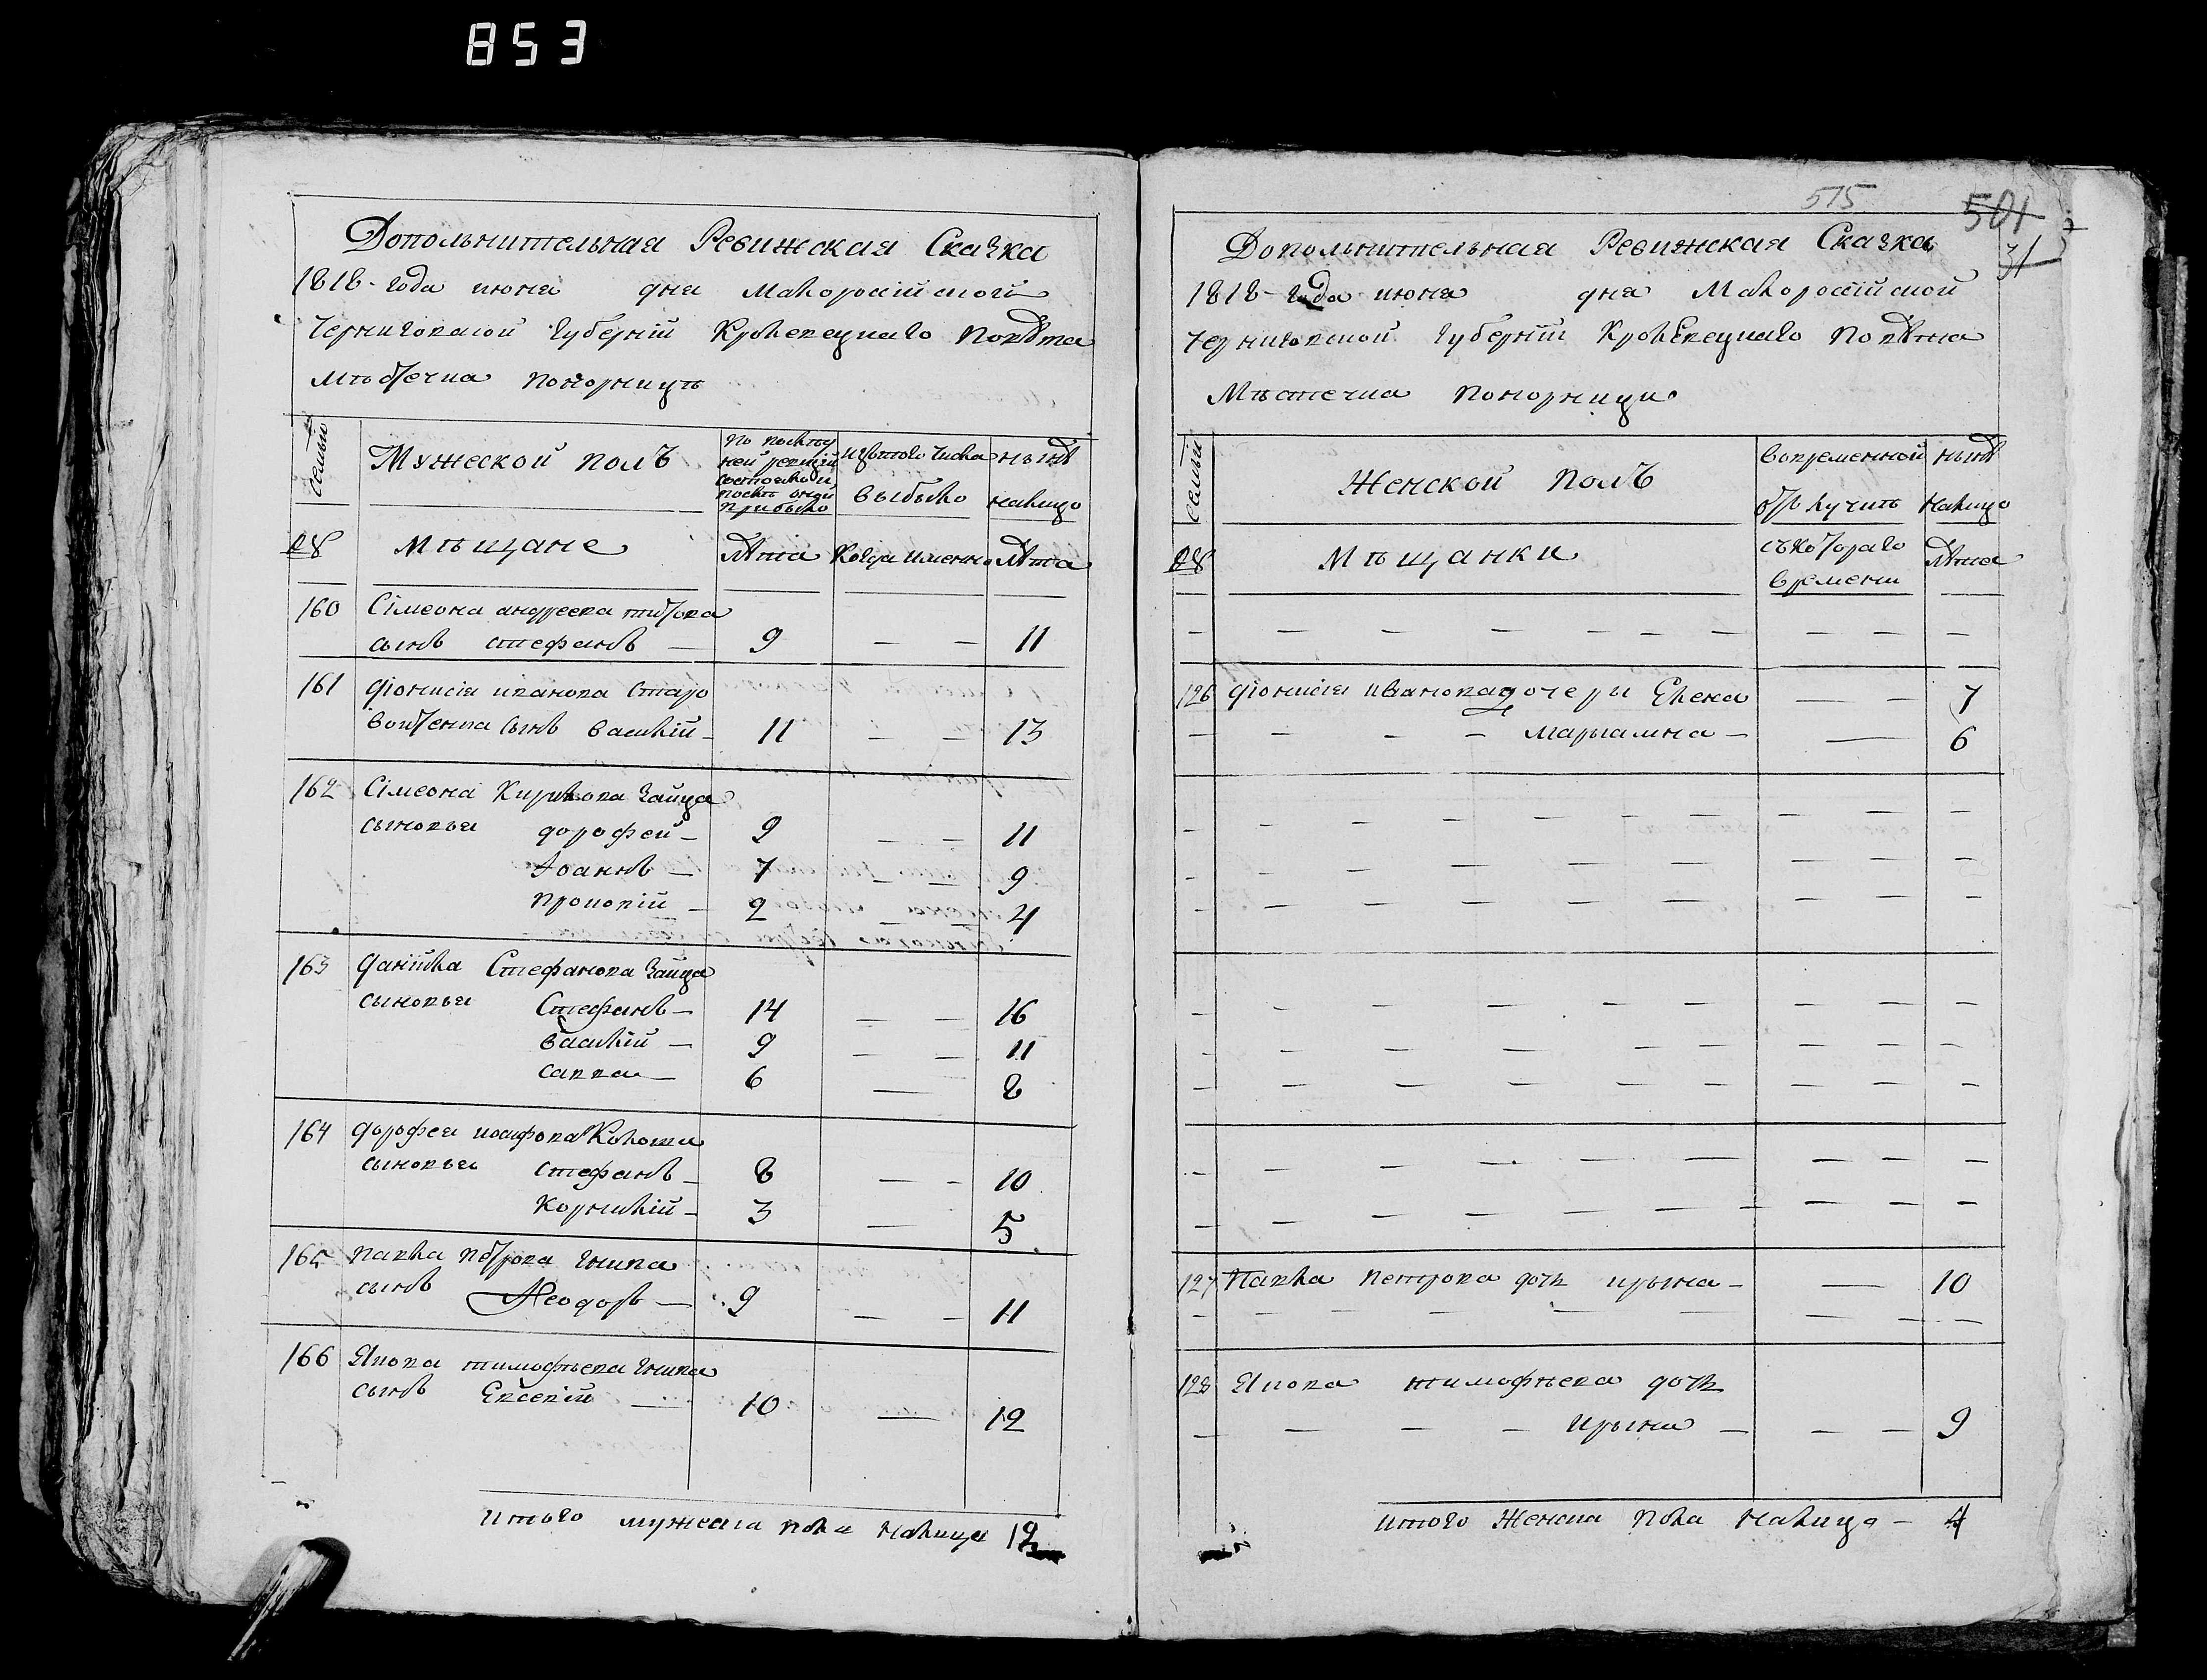 853
Дополнительная Ревижская Сказка
1818-года июня дня Малороссійской
Черниговской Губерніи Кролевецкаго Повѣта
Мѣстечка Понорницѣ
семьи
Мужеской полъ
По послѣд
ней ревизіи
состояло и
послѣ оной
прибыло
изъ того числа
выбыло
нынѣ
налицо
№
Мѣщане
Лѣта
Когда именно
Лѣта
160 Сімеона андреева
сынъ стефанъ — 9 — — 11
161 діонисія иванова Старо
войтенка сынъ василій — 11 — — 13
162 Сімеона Кирилова Зайца
сыновья дорофей — 9 — — 11
Іоаннъ — 7 — — 9
прокопій — 2 — — 4
163 даніила Стефанова Зайца
сыновья Стефанъ — 14 — — 16
василій — 9 — — 11
савва — 6 — 8
164 дорофея иосифова
сыновья стефанъ — 8 — — 10
корнилій — 3 — 5
165 павла петрова
сынъ Ѳеодоръ — 9 — — 11
166 Якова тимофѣева
сынъ Евсевій — 10 — 12
итого мужеска пола налицо 12
575
501
31
Дополнительная Ревижская Сказка
1818-года июня дня Малороссійской
черниговской губерніи Кролевецкаго Повѣта
Мѣстечка Понорници
семьи
Женской полъ
во временной
отлучкѣ
нынѣ
налицо
№
Мѣщанки
съ котораго
времени
Лѣта
126 діонисія иванова дочери Елена — — 7
— — — — марьамна — — 6
127 Павла петрова дочь ирина — — 10
128 Якова тимофѣева дочь
— — — — Ирина — — — 9
итого женска пола налицо — 4